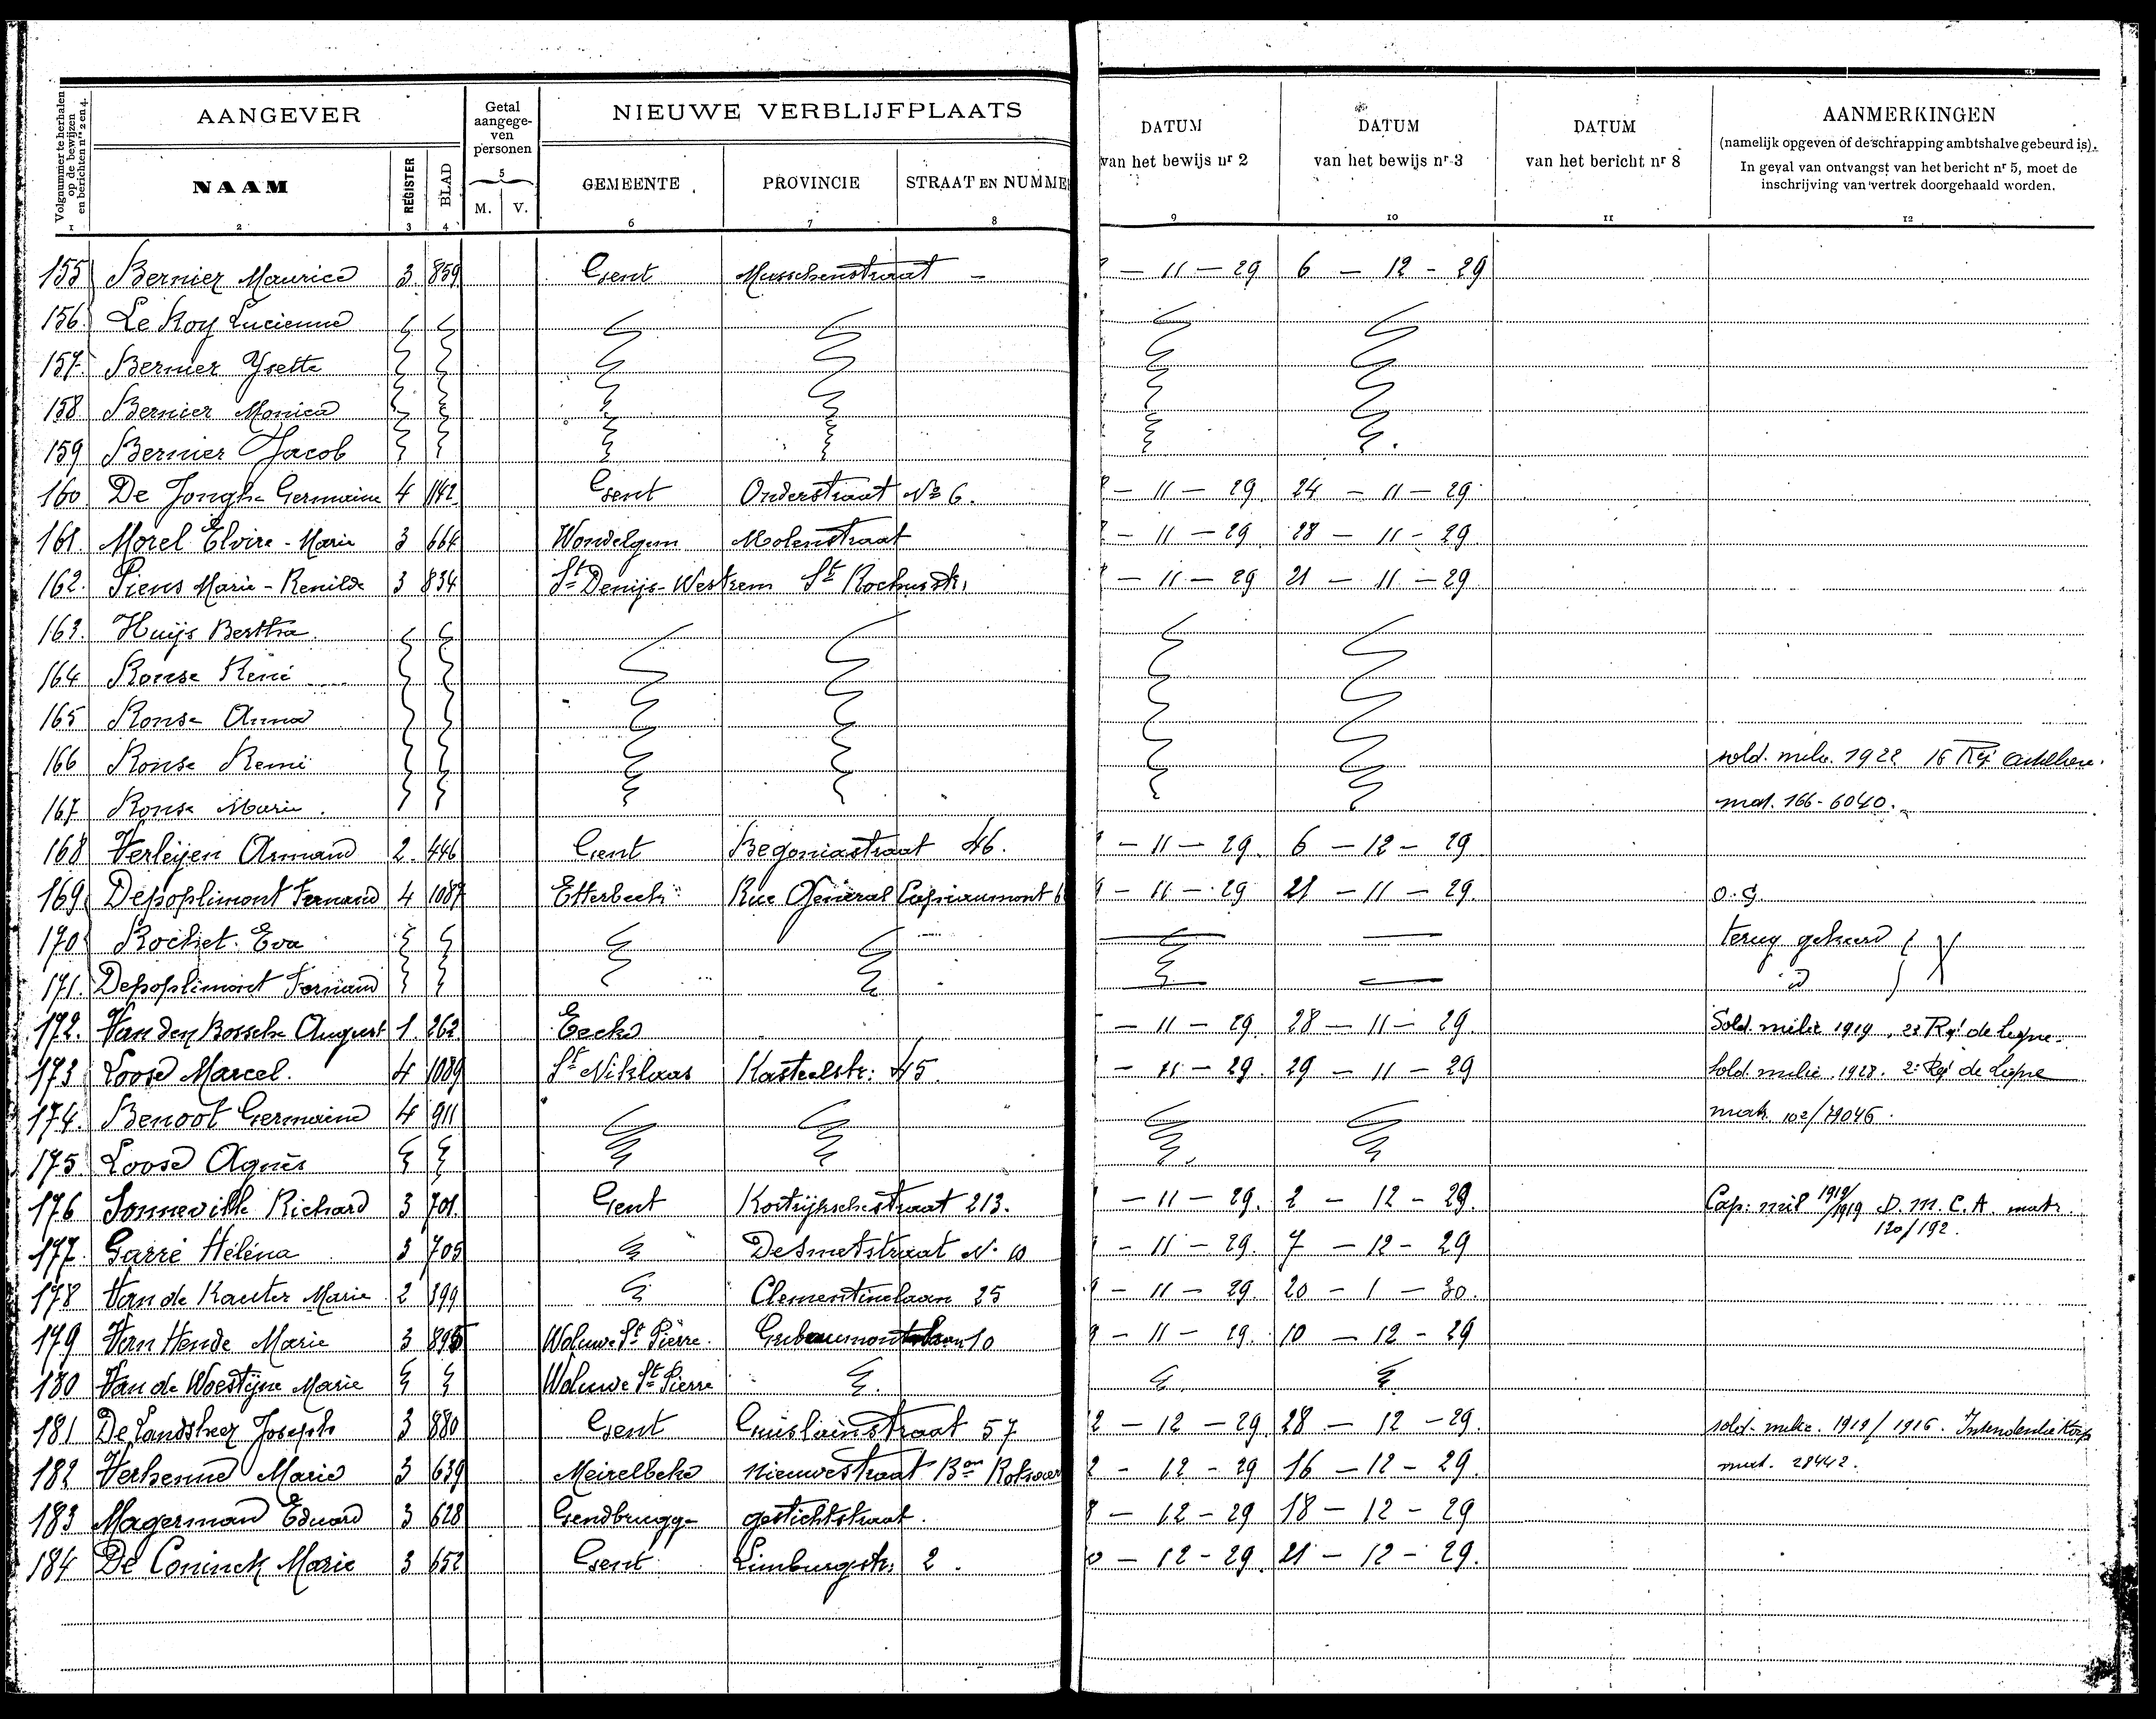 AANGEVER
Getal aangegeven personen
NIEUWE VERBLIJFPLAATS
DATUM van het bewijs nr 2
DATUM van het bewijs nr 3
DATUM van het bericht nr 8
AANMERKINGEN
(namelijk opgeven of de schrapping ambtshalve gebeurd is).
In geval van ontvangst van het bericht nr 5, moet de
inschrijving van vertrek doorgehaald worden.
Volgnummer te herhalen op de bewijzen en berichten nrs 2 en 4.
NAAM REGISTER BLAD M. V. GEMEENTE PROVINCIE STRAAT EN NUMME
1 2 3 4 5 6 7 8 9 10 11 12
155 Bernier Maurice 3 859 Gent Musschenstraat - – 11 – 29 6 – 12 – 29
156. Le Roy Lucienne
157. Bernier Yvette
158 Bernier Monica
159 Bernier Jacob
160. De Jonghe Germaine 4 1142 Gent Onderstraat No 6. – 11 – 29. 24 – 11 – 29
161. Morel Elvire - Marie 3 664 Wondelgem Molenstraat – 11 – 29. 28 – 11 – 29.
162. Piens Marie - Renilde 3 834 St Denijs-Westrem St Rochusstr. – 11 – 29 21 – 11 – 29
163. Huijs Bertha.
164 Ronse René
165 Ronse Anna
166 Ronse Remi sold. milic. 1922 16 Rgt artillerie.
167 Ronse Marie. mat. 166-6040.
168 Verleijen Armand 2. 446 Gent Begoniastraat 46. – 11 – 29. 6 – 12 – 29
169 Depoplimont Fernand 4 1087 Etterbeek Rue Général Capiaumont 6 9 – 11 – 29 21 – 11 – 29. o.g.
170 Rochet. Eva terug gekeerd
171. Depoplimont Fernand id
172. Van den Bossche August 1. 262 Eecke – 11 – 29. 28 – 11 – 29. Sold. milic 1919, 23 Rgt de ligne.
173 Loose Marcel. 4 1089 St Niklaas Kasteelstr: 45. – 11 – 29. 29 – 11 – 29 Sold. milic. 1928. 2e Rgt de Ligne
174. Benoot Germaine 4 911 matr. 102/79046.
175. Loose Agnès
176 Sonneville Richard 3 701 Gent Kortrijkschestraat 213. – 11 – 29. 2 – 12 – 29. Cap: mil 1919/1919 D. M. C. A. matr.
120/192.
177. Garré Héléna 3 705 DeSmetstraat No 10 – 11 – 29. 7 – 12 – 29
178 Van de Kauter Marie 2 399 Clementinelaan 25 9 – 11 – 29. 20 – 1 – 30.
179 Van Hende Marie 3 895 Woluwe St Pierre. 10 9 – 11 – 29. 10 – 12 – 29
180 Van de Woestijne Marie Woluwe St Pierre
181 De Landsheer Joseph 3 880 Gent Guislainstraat 57 2 – 12 – 29. 28 – 12 – 29. sold. milic. 1919/1916. Intendentie Korps
182 Verhenne Marie 3 639 Meirelbeke Nieuwestraat 2 – 12 – 29 16 – 12 – 29. mat. 28442.
183 Magerman Eduard 3 628 Gendbrugge gestichtstraat. 8 – 12 – 29 18 – 12 – 29
184 De Coninck Marie 3 652 Gent Limburgstr: 2. 0 – 12 – 29. 21 – 12 – 29.